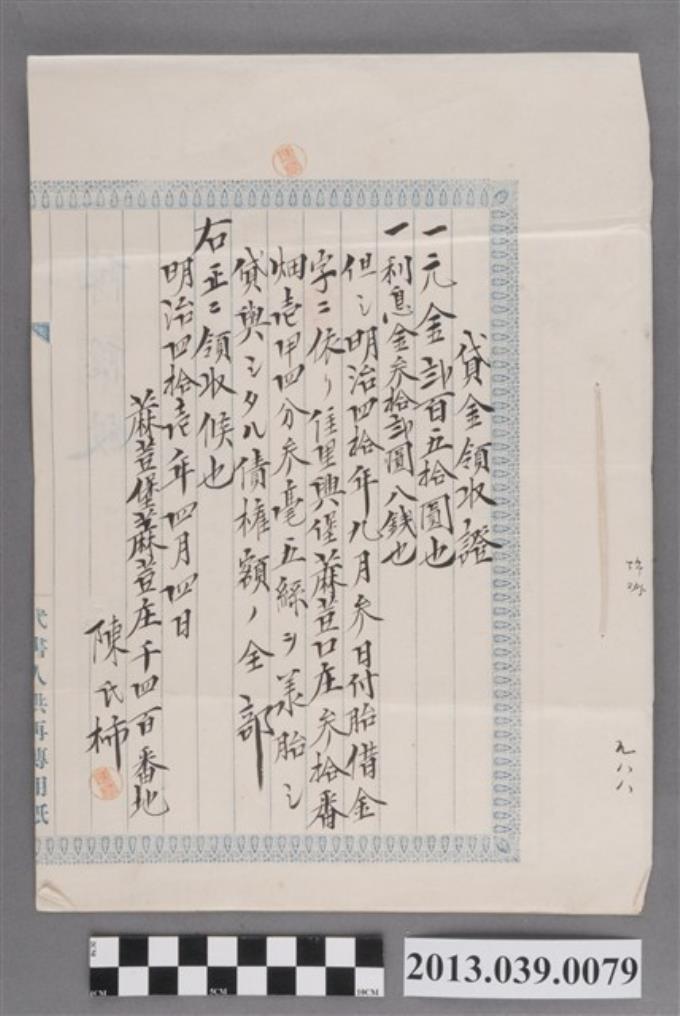 貸金領收證
一元金貳百五拾圓也
一利息金叁拾貳圓八錢也
但シ明治四拾年九月叁日付胎借金
字ニ依リ佳里興堡蔴荳口庄叁拾番
畑壱甲四分叁毫五絲ヲ業胎シ
貸與シタル債權額ノ全部
右正ニ領收候也
明治四拾壱年四月四日
蔴荳堡蔴荳庄千四百番地
陳氏柿
代書人洪再傳用紙
九八八
2013.039.0079
0CM
5CM
10CM